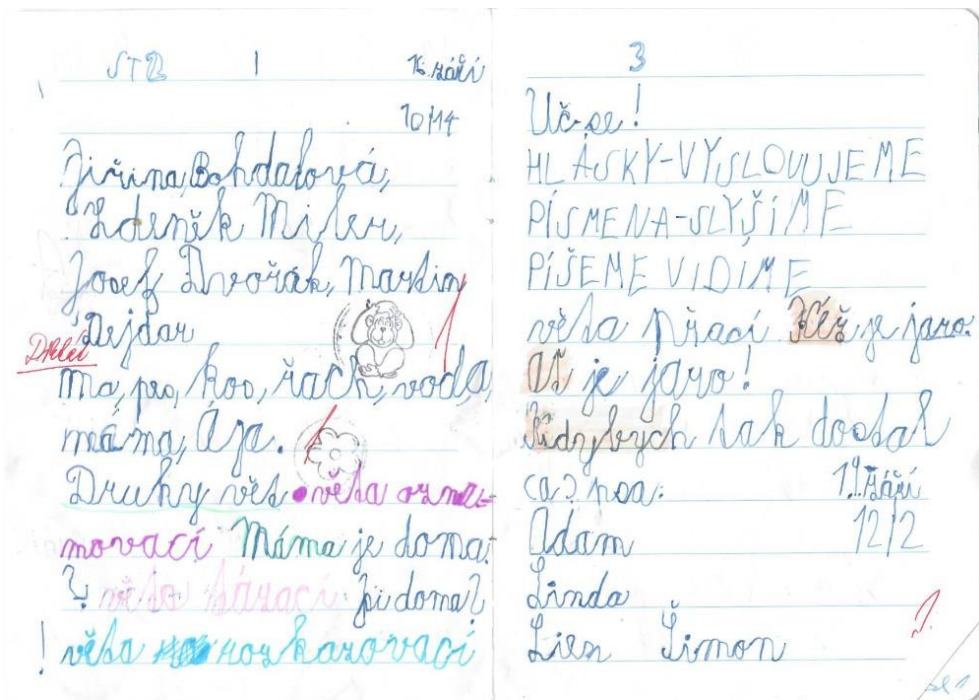 16. září
10/14
Jiřina Bohdalová,
Zdeněk Miler,
Josef Dvořák, Martin
Dejdar
má, pes, kos, řach, voda,
máma, Ája.
Druhy vět věta ozna-
movací Máma je doma.
? věta tázací je doma?
! věta rozkazovací
3
Uč se!
HLÁSKY-VYSLOVUJEME
PÍSMENA-SLYŠÍME
PÍŠEME VIDIME
věta přací Kéž je jaro.
Ať je jaro!
Kidybych tak dostal
19. září
12/2
Adam
Linda
Šimon